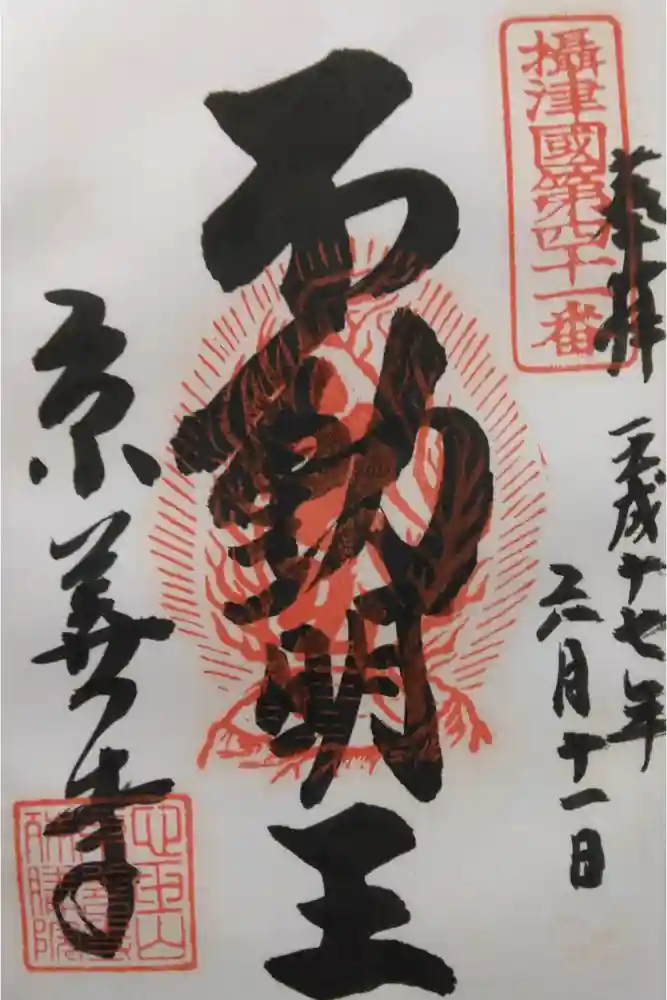 攝津國第四十一番
奉拝
平成十七年
六月十一日
不動明王
京善寺